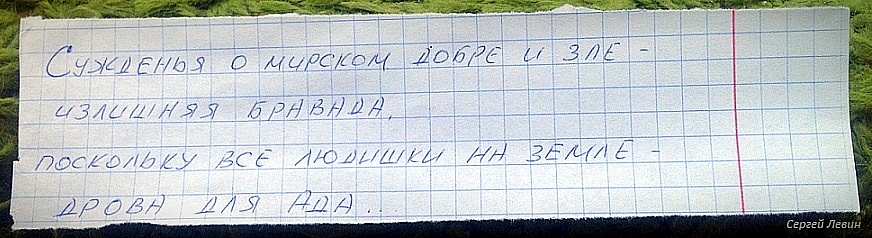 Сужденья о мирском добре и зле –
излишняя бравада,
поскольку все людишки на земле –
дрова для Ада...
Сергей Левин